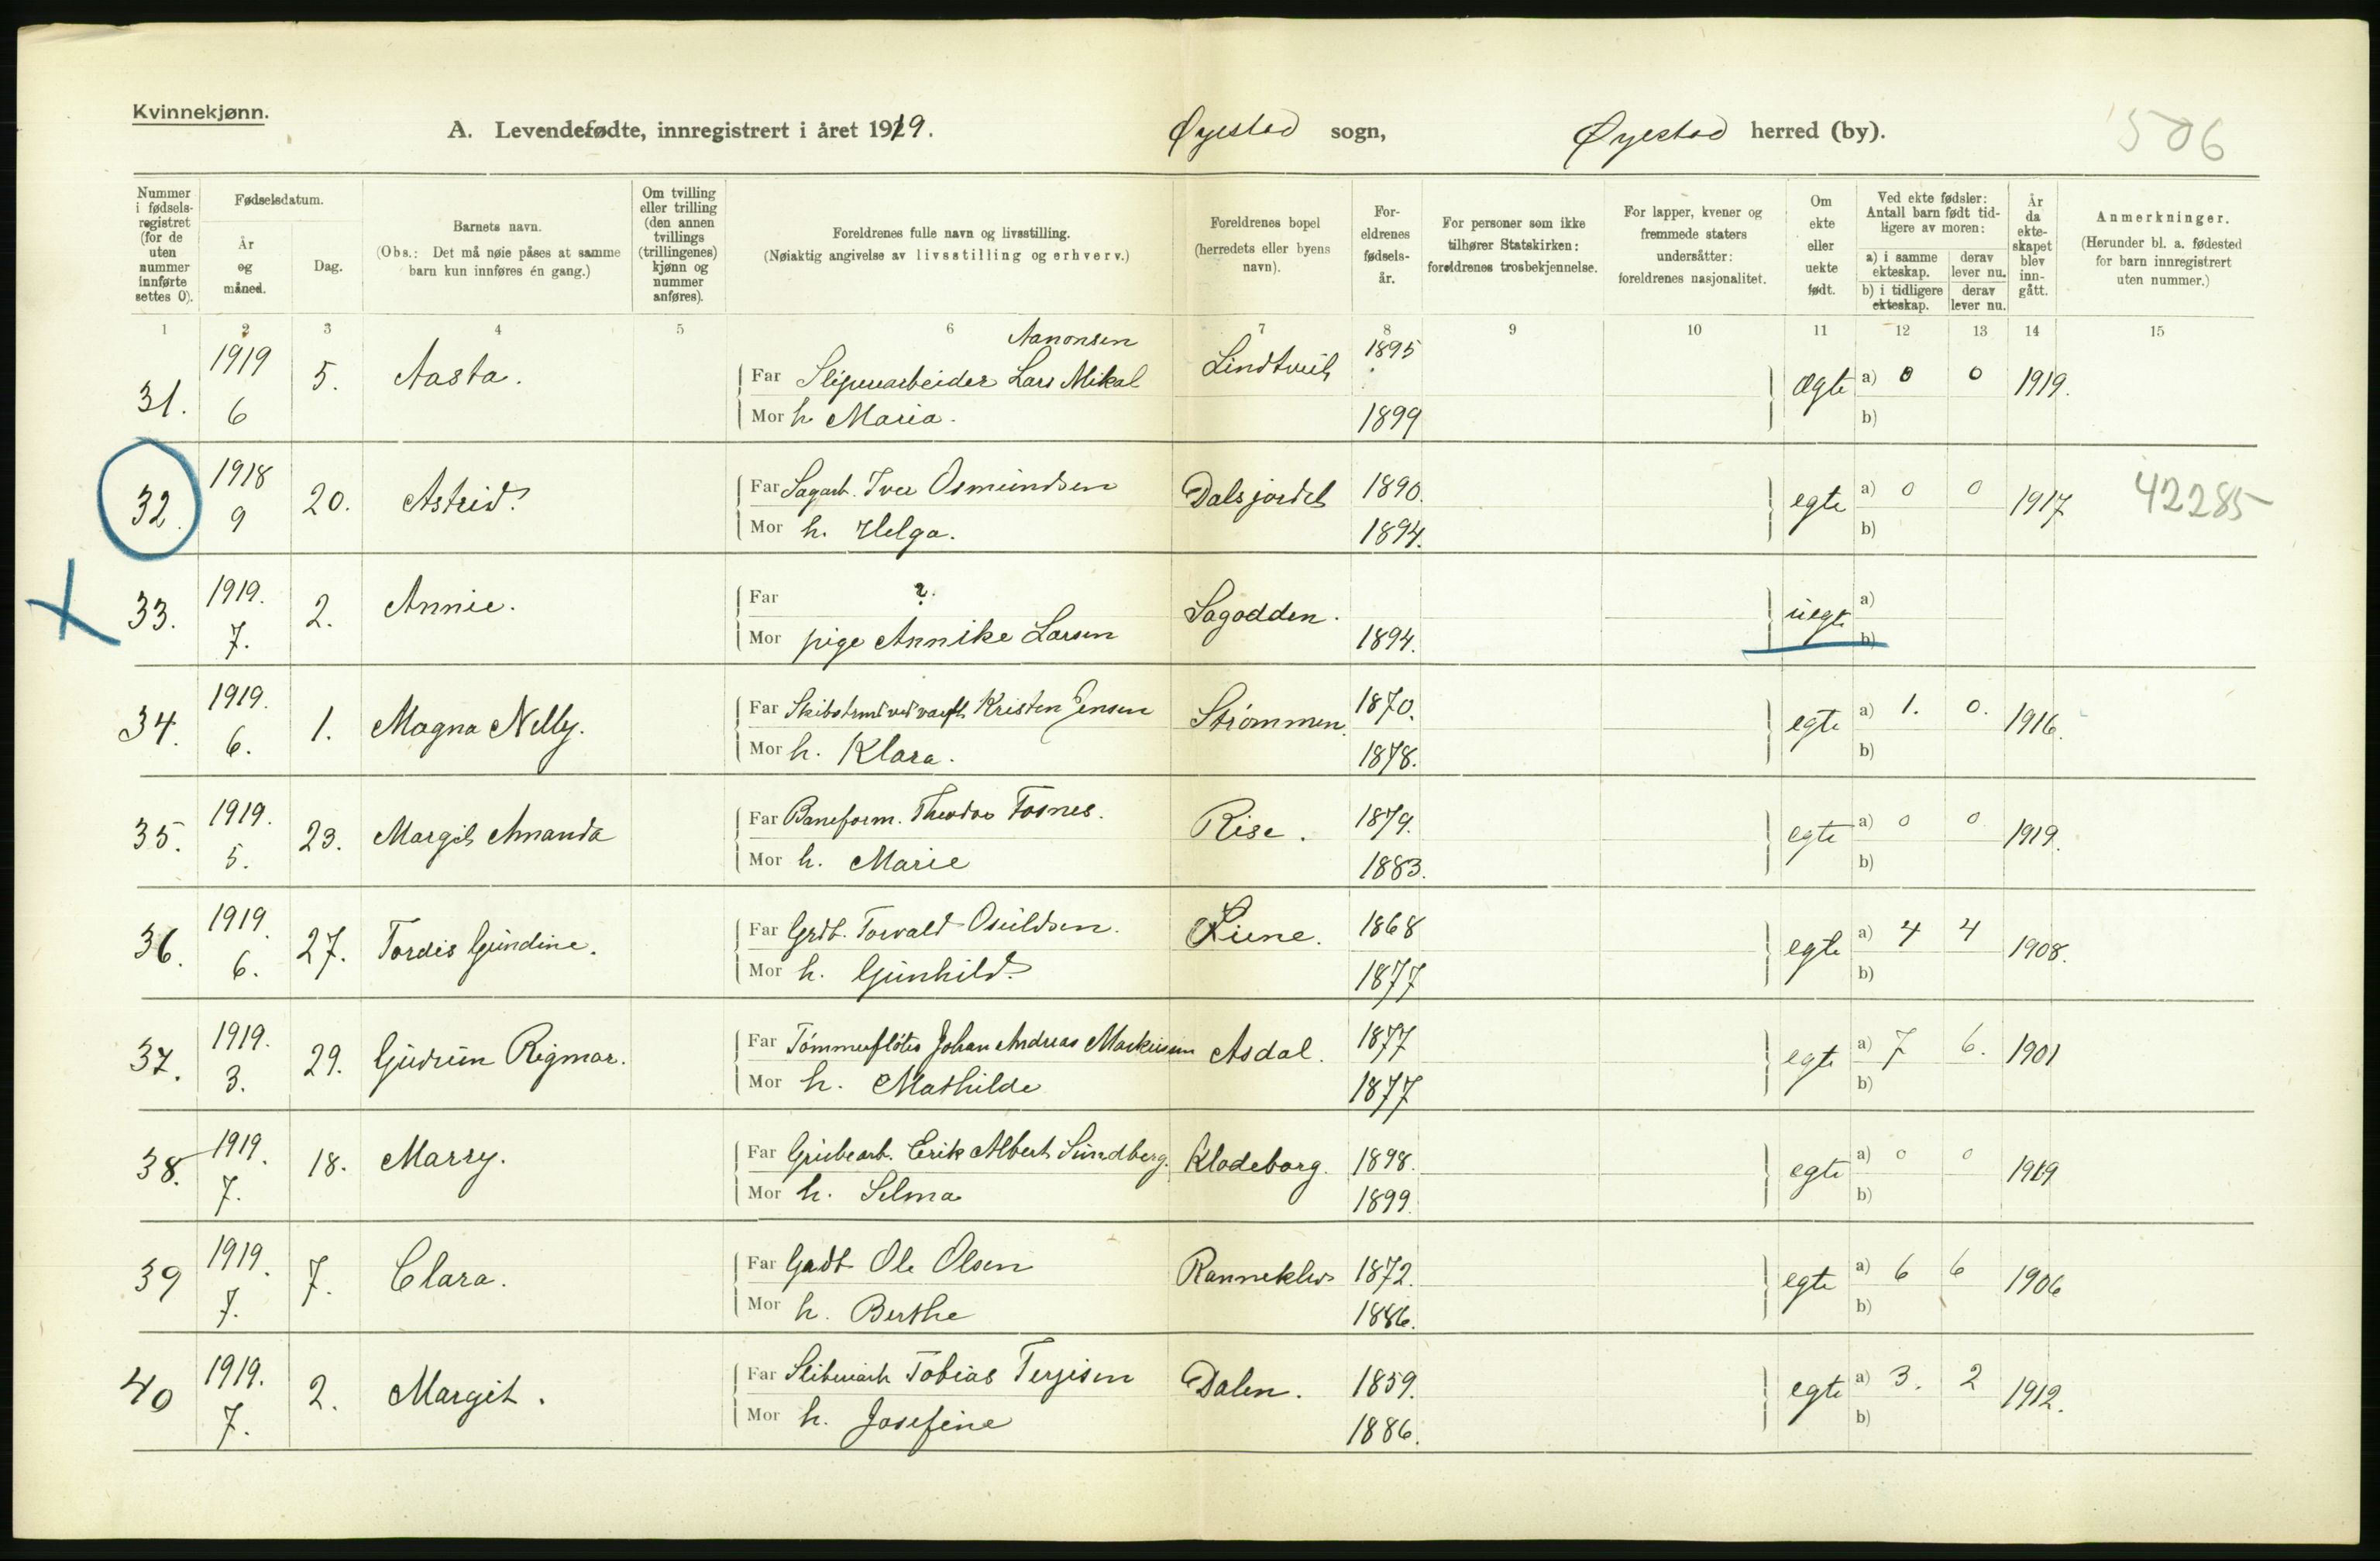 Kvinnekjønn.
A. Levendefødte, innregistrert i året 1919. Øyestad sogn, Øyestad herred (by). 506
Nummer i fødselsregistret (for de uten nummer innførte settes 0).
Fødselsdatum.
År og måned.
Dag.
Barnets navn.
(Obs.: Det må nøie påses at samme barn kun innføres én gang.)
Om tvilling eller trilling (den annen tvillings (trillingenes) kjønn og nummer anføres).
Foreldrenes fulle navn og livsstilling.
(Nøiaktig angivelse av livsstilling og erhverv.)
Foreldrenes bopel (herredets eller byens navn).
Foreldrenes fødselsår.
For personer som ikke tilhører Statskirken: foreldrenes trosbekjennelse.
For lapper, kvener og fremmede staters undersåtter: foreldrenes nasjonalitet.
Om ekte eller uekte født.
Ved ekte fødsler: Antall barn født tidligere av moren:
a) i samme ekteskap. derav lever nu.
b) i tidligere ekteskap. derav lever nu.
År da ekteskapet blev inngått.
Anmerkninger.
(Herunder bl. a. fødested for barn innregistrert uten nummer.)
1 2 3 4 5 6 7 8 9 10 11 12 13 14 15
Aanonsen
31. 1919 5. Aasta. Far Sliperarbeider Lars Mikal Lindtveit 1895 ægte a) 0 0 1919.
6 Mor h. Maria. 1899 b)
32. 1918 20. Astrid Far Sagarb. Iver Osmundsen Dalsjordet 1890. egte a) 0 0 1917 42285
9 Mor h. Helga. 1894. b)
33. 1919. 2. Annie. Far ?. Sagodden. uegte a)
7. Mor pige Annike Larsen 1894. b)
34. 1919. 1. Magna Nelly. Far Kristen Jensen Strømmen. 1870. egte a) 1. 0. 1916.
6. Mor h. Klara. 1878. b)
35. 1919. 23. Margit Amanda Far Baneform. Theodor Fosnes. Rise. 1879. egte a) 0 0 1919.
5. Mor h. Marie 1883. b)
36. 1919. 27. Tordis Gundine. Far Grdb. Torvald Osuldsen. 1868 egte a) 4 4 1908.
6. Mor h. Gunhild 1877 b)
37. 1919. 29. Gudrun Rigmor. Far Tømmerfløter Johan Andreas Markussen Asdal. 1877 egte a) 7 6. 1901
3. Mor h. Mathilde 1877 b)
38. 1919. 18. Marry. Far Grubearb. Erik Albert Sundberg. Klodeborg. 1898. egte a) 0 0 1919
7. Mor h. Selma 1899. b)
39 1919. 7. Clara. Far Grdb. Ole Olsen Ranneklev 1872. egte a) 6 6 1906
7. Mor h. Berthe 1886. b)
40 1919. 2. Margit. Far Tobias Terjesen Dalen. 1859. egte a) 3. 2 1912.
7. Mor h. Josefine 1886. b)